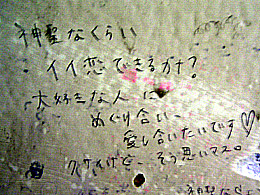 神聖なくらい
イイ恋できるカナ?
大好きな人に
めぐり合い、
愛し合いたいです♡
クサイけど、そう思いマス。